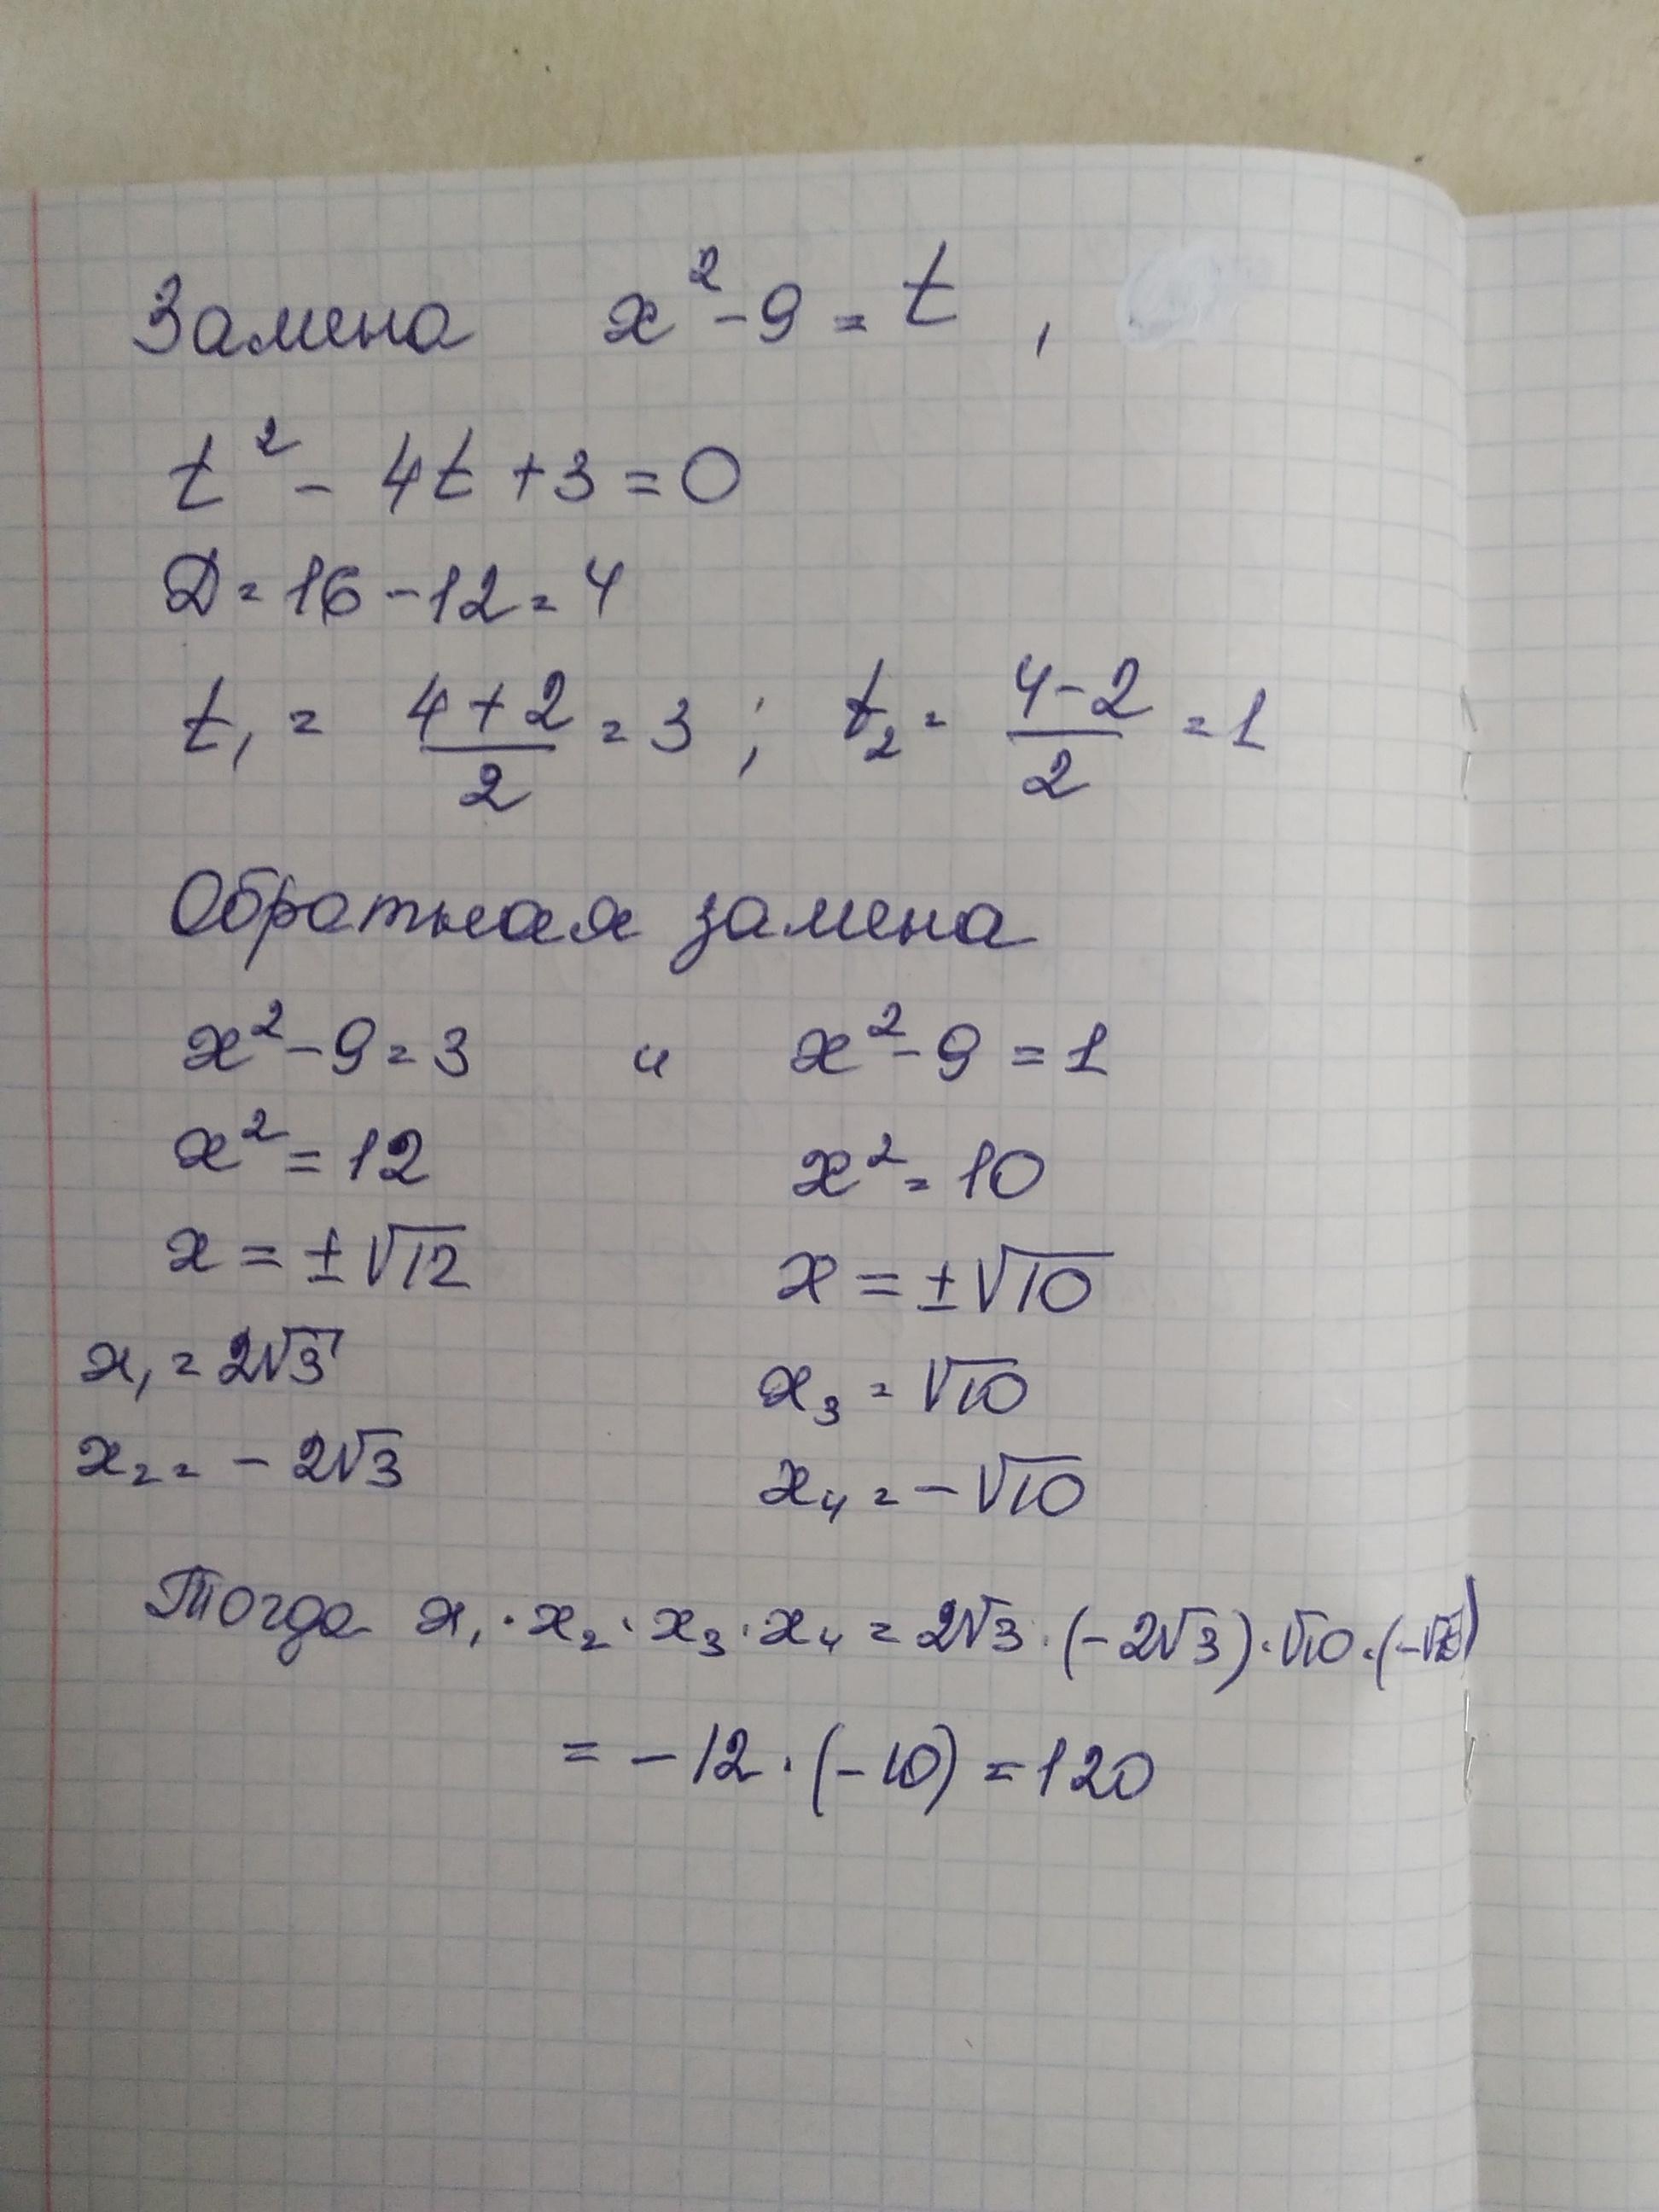 Замена x² - 9 = t ,
t² - 4t + 3 = 0
D = 16 - 12 = 4
t₁ = (4 + 2)/2 = 3 ; t₂ = (4 - 2)/2 = 1
Обратная замена
x² - 9 = 3 и x² - 9 = 1
x² = 12 x² = 10
x = ±√12 x = ±√10
x₁ = 2√3 x₃ = √10
x₂ = - 2√3 x₄ = - √10
Тогда x₁ · x₂ · x₃ · x₄ = 2√3 · (- 2√3) · √10 · (-√10)
= - 12 · (- 10) = 120